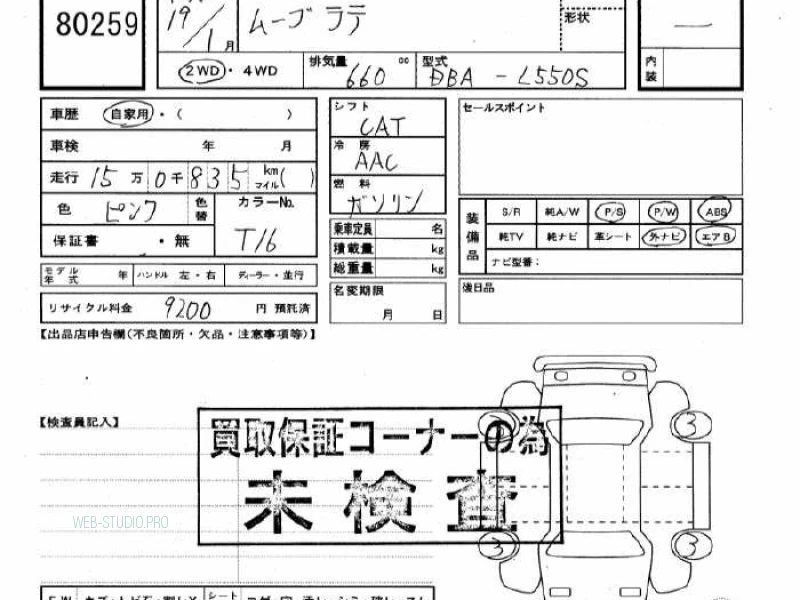 80259
19
1月
ムーブラテ
形状
2WD・4WD
排気量 660 cc
型式 DBA - L550S
内装
車歴 自家用・( )
車検 年 月
走行 15万0千835 km マイル( )
色 ピンク 色替
カラーNo. T16
保証書 ・無
モデル年式 年 ハンドル 左・右 ディーラー・並行
リサイクル料金 9200 円 預託済
シフト CAT
冷房 AAC
燃料 ガソリン
乗車定員 名
積載量 kg
総重量 kg
名変期限
月 日
セールスポイント
装備品
S/R 純A/W P/S P/W ABS
純TV 純ナビ 革シート 外ナビ エアB
ナビ型番：
後日品
【出品店申告欄(不良箇所・欠品・注意事項等)】
【検査員記入】
買取保証コーナーの為
未検査
WEB-STUDIO.PRO
3
3
3
3